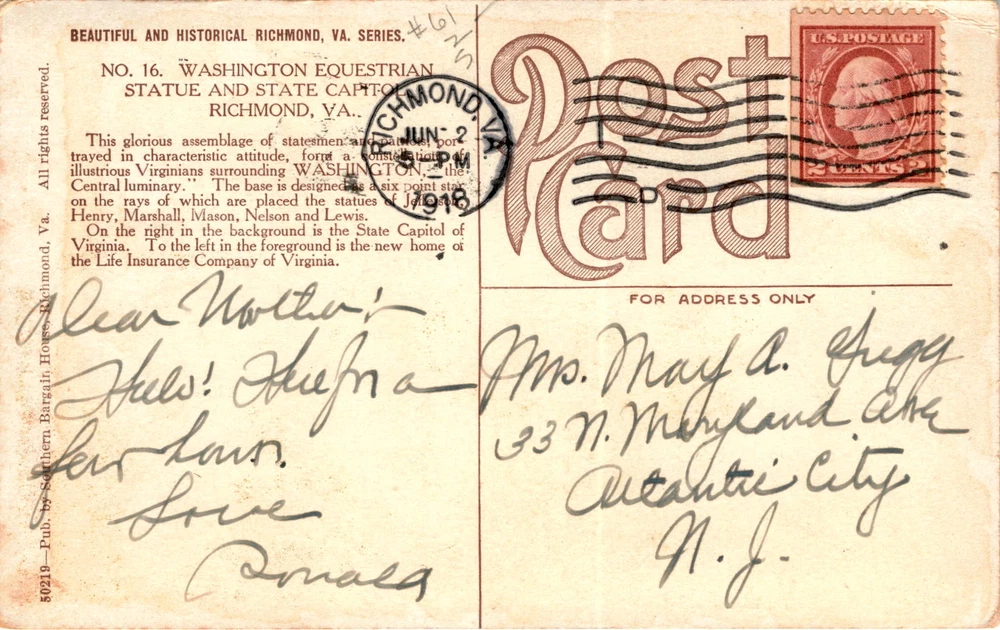 BEAUTIFUL AND HISTORICAL RICHMOND, VA. SERIES.
#61
NO. 16. WASHINGTON EQUESTRIAN
STATUE AND STATE CAPITOL
RICHMOND, VA.
This glorious assemblage of statesmen and patriots, por-
trayed in characteristic attitude, form a constellation of
illustrious Virginians surrounding WASHINGTON, "the
Central luminary." The base is designed as a six point star
on the rays of which are placed the statues of Jefferson,
Henry, Marshall, Mason, Nelson and Lewis.
On the right in the background is the State Capitol of
Virginia. To the left in the foreground is the new home of
the Life Insurance Company of Virginia.
50219—Pub. by Southern Bargain House, Richmond, Va. All rights reserved.
Dear Mother:-
Hello! Here for a
few hours.
Love
Donald
Post
Card
RICHMOND, VA.
JUN 2
5 PM
1918
D
U.S. POSTAGE
2 CENTS 2
FOR ADDRESS ONLY
Mrs. May A. Gregg
33 N. Maryland Ave
Atlantic City
N. J.